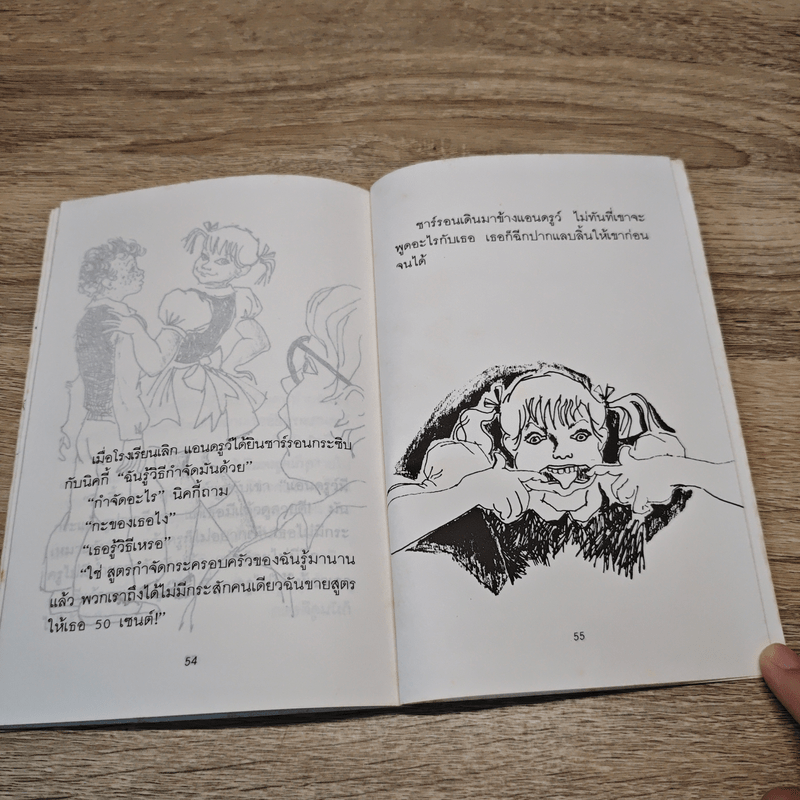 เมื่อโรงเรียนเลิก แอนดรูว์ได้ยินชาร์รอนกระซิบ
กับนิคกี้ “ฉันรู้วิธีกำจัดมันด้วย”
“กำจัดอะไร” นิคกี้ถาม
“กะของเธอไง”
“เธอรู้วิธีเหรอ”
“ใช่ สูตรกำจัดกระครอบครัวของฉันรู้มานาน
แล้ว พวกเราถึงได้ไม่มีกระสักคนเดียวฉันขายสูตร
ให้เธอ 50 เซนต์!”
54
ชาร์รอนเดินมาข้างแอนดรูว์ ไม่ทันที่เขาจะ
พูดอะไรกับเธอ เธอก็ฉีกปากแลบลิ้นให้เขาก่อน
จนได้
55